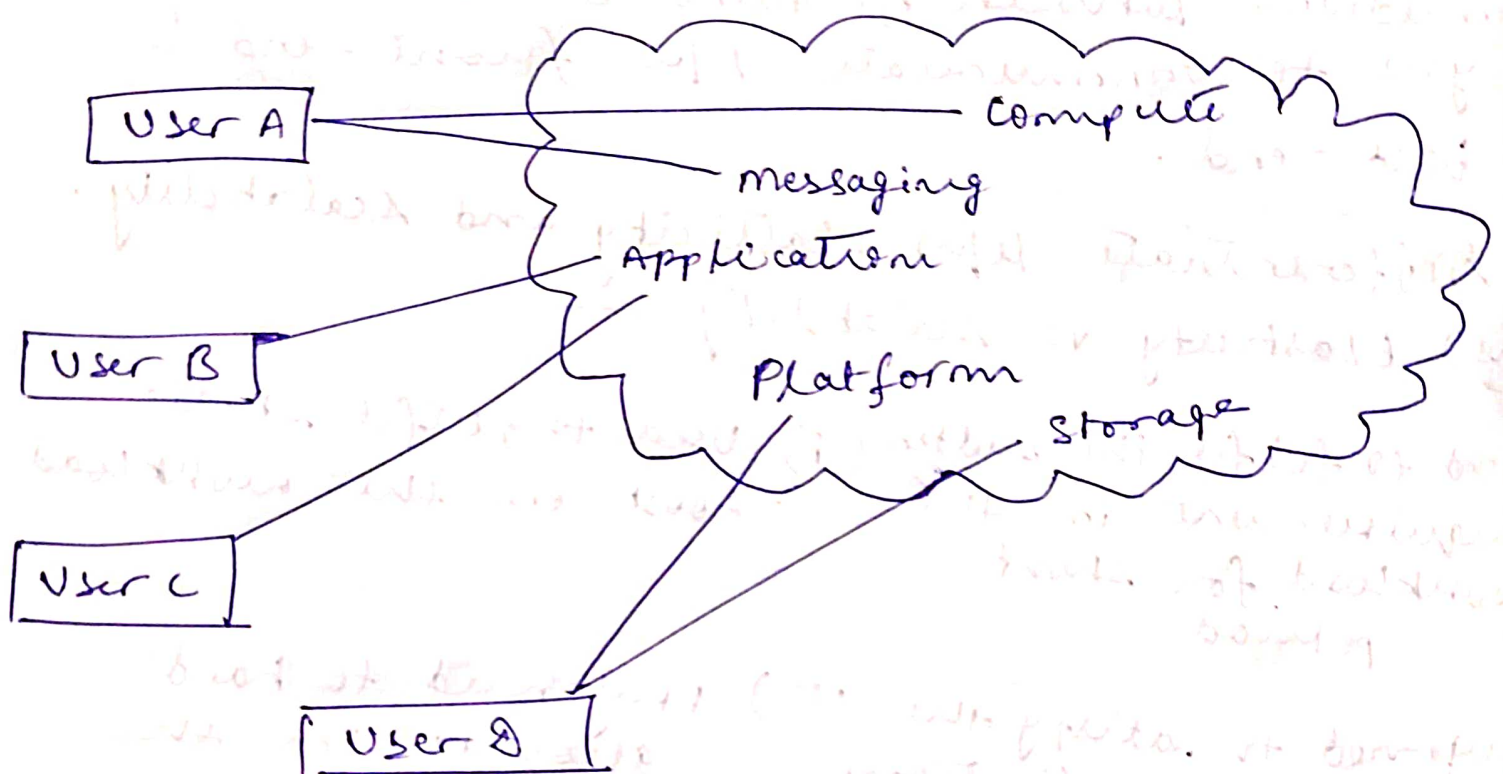 User A
Compute
Messaging
Application
User B
Platform
Storage
User C
User D